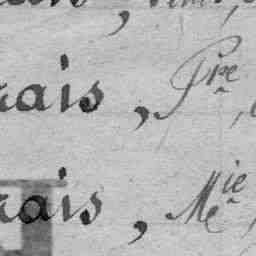 rais, Pre,
rais, Mie,